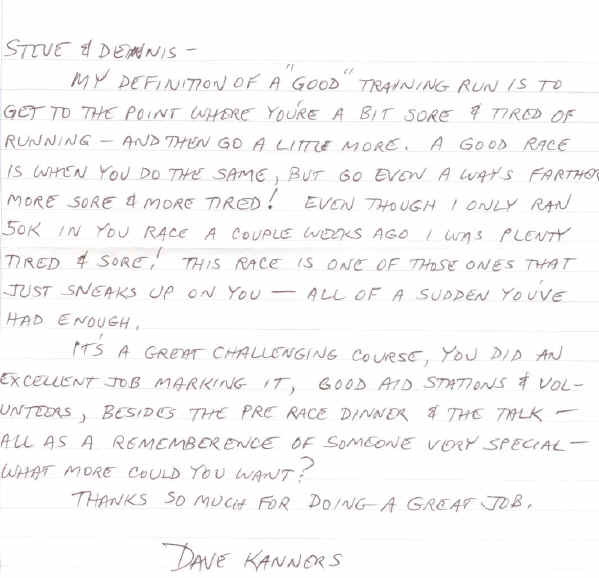 STEVE & DENNIS -
MY DEFINITION OF A "GOOD" TRAINING RUN IS TO
GET TO THE POINT WHERE YOU'RE A BIT SORE & TIRED OF
RUNNING - AND THEN GO A LITTLE MORE. A GOOD RACE
IS WHEN YOU DO THE SAME, BUT GO EVEN A WAYS FARTHER
MORE SORE & MORE TIRED! EVEN THOUGH I ONLY RAN
50K IN YOU RACE A COUPLE WEEKS AGO I WAS PLENTY
TIRED & SORE! THIS RACE IS ONE OF THOSE ONES THAT
JUST SNEAKS UP ON YOU - ALL OF A SUDDEN YOU'VE
HAD ENOUGH.
IT'S A GREAT CHALLENGING COURSE, YOU DID AN
EXCELLENT JOB MARKING IT, GOOD AID STATIONS & VOL-
UNTEERS, BESIDES THE PRE RACE DINNER & THE TALK -
ALL AS A REMEMBERENCE OF SOMEONE VERY SPECIAL -
WHAT MORE COULD YOU WANT?
THANKS SO MUCH FOR DOING A GREAT JOB.
DAVE KANNERS